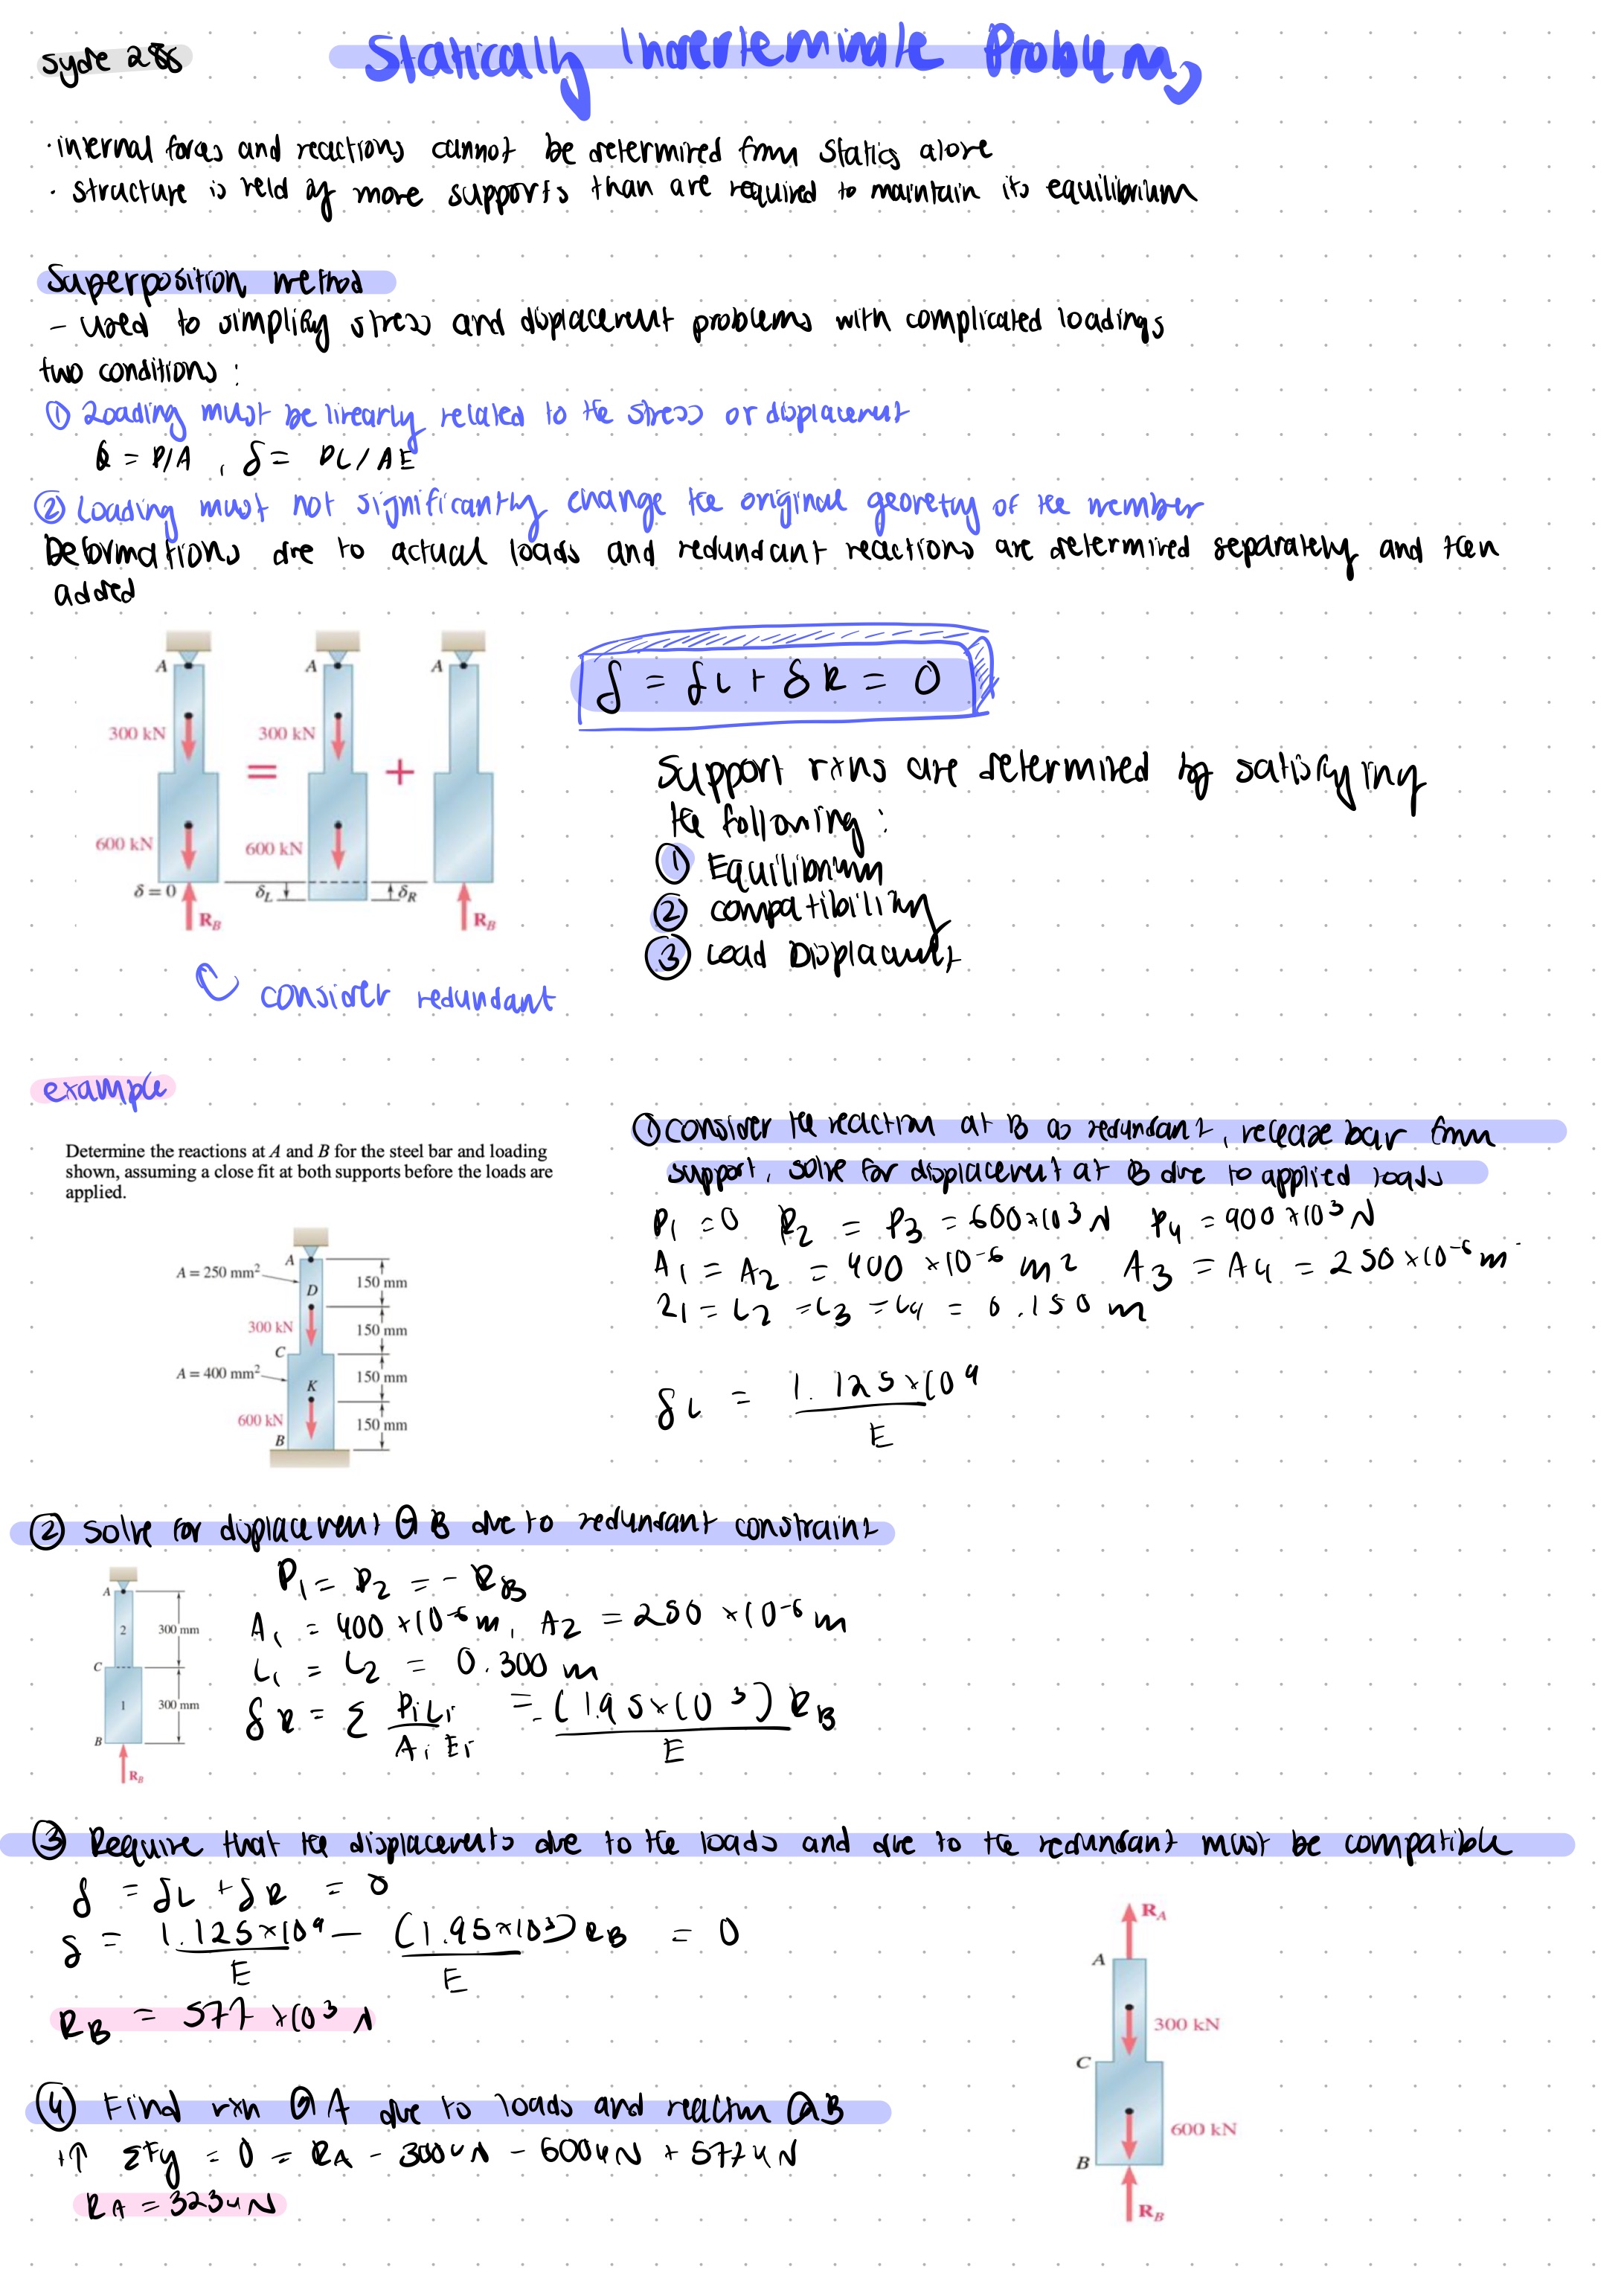 syde 286
Statically Indeterminate Problems
· internal forces and reactions cannot be determined from statics alone
· structure is held by more supports than are required to maintain its equilibrium
Superposition method
- used to simplify stress and displacement problems with complicated loadings
two conditions:
① Loading must be linearly related to the stress or displacement
σ = P/A , δ = PL/AE
② Loading must not significantly change the original geometry of the member
Deformations due to actual loads and redundant reactions are determined separately and then
added
A
300 kN
600 kN
δ = 0
R_B
=
A
300 kN
600 kN
δ_L
+
A
δ_R
R_B
consider redundant
δ = δL + δR = 0
Support rxns are determined by satisfying
the following:
① Equilibrium
② compatibility
③ Load Displacement
example
Determine the reactions at A and B for the steel bar and loading
shown, assuming a close fit at both supports before the loads are
applied.
A
A = 250 mm²
D
150 mm
300 kN
150 mm
C
A = 400 mm²
150 mm
K
600 kN
150 mm
B
① consider the reaction at B as redundant, release bar from
support, solve for displacement at B due to applied loads
P1 = 0 P2 = P3 = 600×10³ N P4 = 900×10³ N
A1 = A2 = 400 ×10⁻⁶ m² A3 = A4 = 250×10⁻⁶ m
L1 = L2 = L3 = L4 = 0.150 m
δL = 1.125×10⁹ / E
② solve for displacement @ B due to redundant constraint
A
2
300 mm
C
1
300 mm
B
R_B
P1 = P2 = - RB
A1 = 400 ×10⁻⁶ m, A2 = 250 ×10⁻⁶ m
L1 = L2 = 0.300 m
δR = Σ PiLi / AiEi = - (1.95×10³) RB / E
③ Require that the displacements due to the loads and due to the redundant must be compatible
δ = δL + δR = 0
δ = 1.125×10⁹ / E - (1.95×10³) RB / E = 0
RB = 577 ×10³ N
④ Find rxn @ A due to loads and reaction @ B
+↑ ΣFy = 0 = RA - 300kN - 600kN + 577kN
RA = 323kN
R_A
A
300 kN
C
600 kN
B
R_B